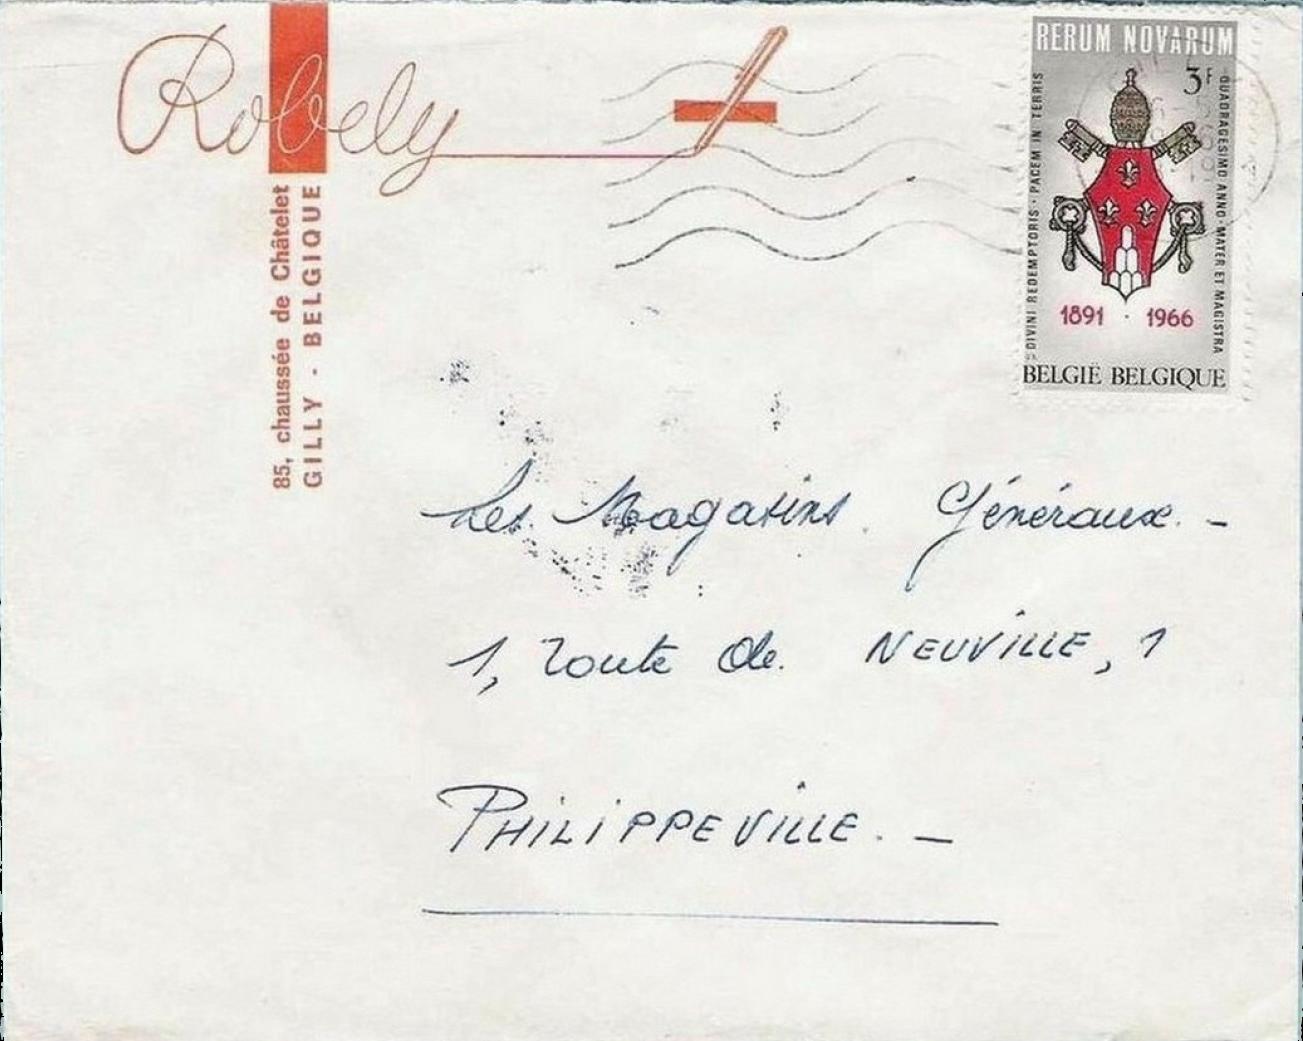 Robely
85, chaussée de Châtelet
GILLY - BELGIQUE
RERUM NOVARUM
3F
DIVINI REDEMPTORIS · PACEM IN TERRIS
QUADRAGESIMO ANNO · MATER ET MAGISTRA
1891 · 1966
BELGIË BELGIQUE
Les Magasins Généraux. -
1, route de. NEUVILLE, 1
PHILIPPEVILLE. -